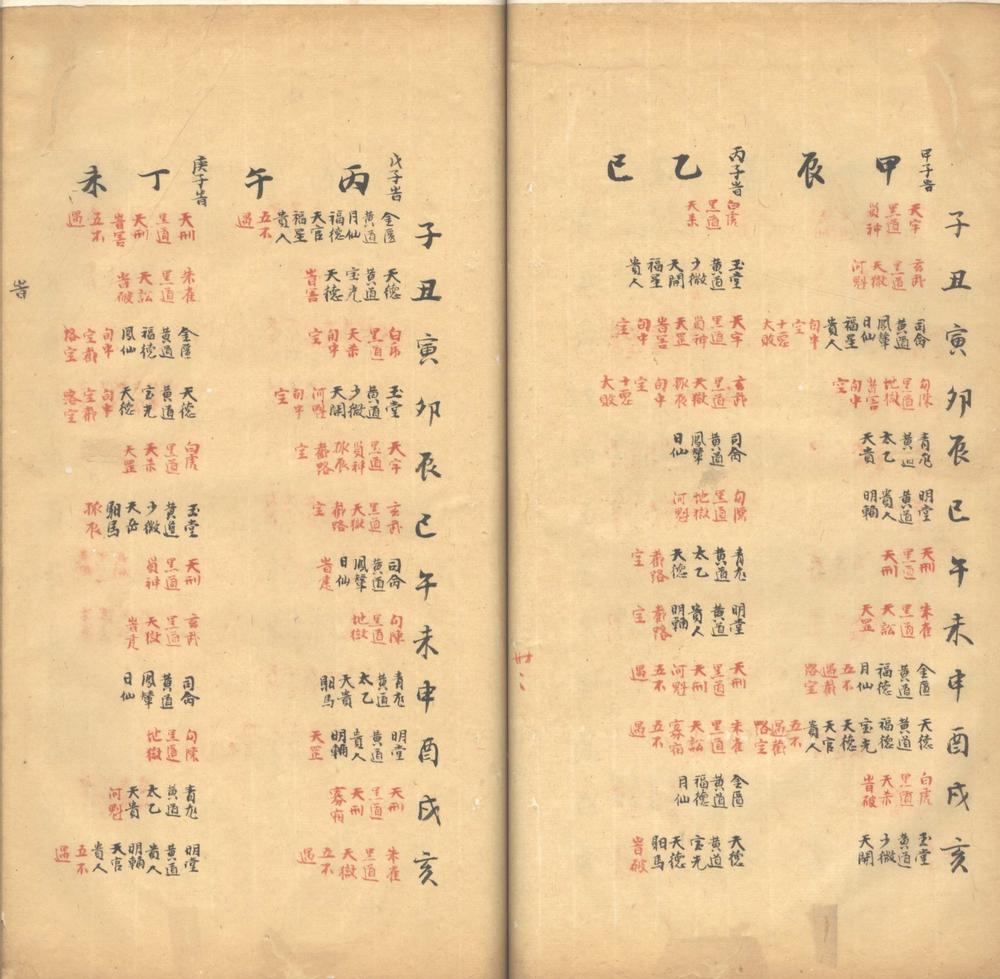 子
丑
寅
卯
辰
巳
午
未
申
酉
戌
亥
甲子旹
甲辰
天牢 黑道
玄武 黑道 天獄 河魁
司命 黃道 鳳輦 日仙 福星 貴人 旬中空 十惡大敗
勾陳 黑道 地獄 旹害 旬中空
青龍 黃道 太乙 天貴
明堂 黃道 貴人 明輔
天刑 黑道 天刑
朱雀 黑道 天訟 天罡
金匱 黃道 福德 月仙 五不遇 截路空
天德 黃道 福德 宝光 天德 天官 貴人 五不遇 截路空
白虎 黑道 天杀 旹破
玉堂 黃道 少微 天開
丙子旹
乙巳
白虎 黑道 天杀
玉堂 黃道 少微 天開 福星 貴人
天牢 黑道 天罡 旹害 旬中空
玄武 黑道 天獄 孤辰 旬中空 十惡大敗
司命 黃道 鳳輦 日仙
勾陳 黑道 地獄 河魁
青龍 黃道 太乙 天德 截路空
明堂 黃道 貴人 明輔 截路
天刑 黑道 天刑 河魁 五不遇
朱雀 黑道 天訟 寡宿 五不遇
金匱 黃道 福德 月仙
天德 黃道 宝光 天德 馹馬 旹破
子
丑
寅
卯
辰
巳
午
未
申
酉
戌
亥
戊子旹
丙午
金匱 黃道 月仙 福德 天官 福星 貴人 五不遇
天德 黃道 宝光 天德 旹害
白虎 黑道 天杀 旬中空
玉堂 黃道 少微 天開 河魁 旬中空
天牢 黑道 孤辰 截路空
玄武 黑道 天獄 截路空
司命 黃道 鳳輦 日仙 旹建
勾陳 黑道 地獄
青龍 黃道 太乙 天貴 馹馬
明堂 黃道 貴人 明輔 天罡
天刑 黑道 天刑 寡宿
朱雀 黑道 天獄 五不遇
庚子旹
丁未
天刑 黑道 天刑 旹害 五不遇
朱雀 黑道 天訟 旹破
金匱 黃道 福德 鳳仙 旬中空 截路空
天德 黃道 宝光 天德 旬中空 截路空
白虎 黑道 天杀 天罡
玉堂 黃道 少微 天岳 馹馬 孤辰
天刑 黑道
玄武 黑道 天獄
司命 黃道 鳳輦 日仙
勾陳 黑道 地獄
青龍 黃道 太乙 天貴 河魁
明堂 黃道 貴人 明輔 天官 貴人 五不遇
旹